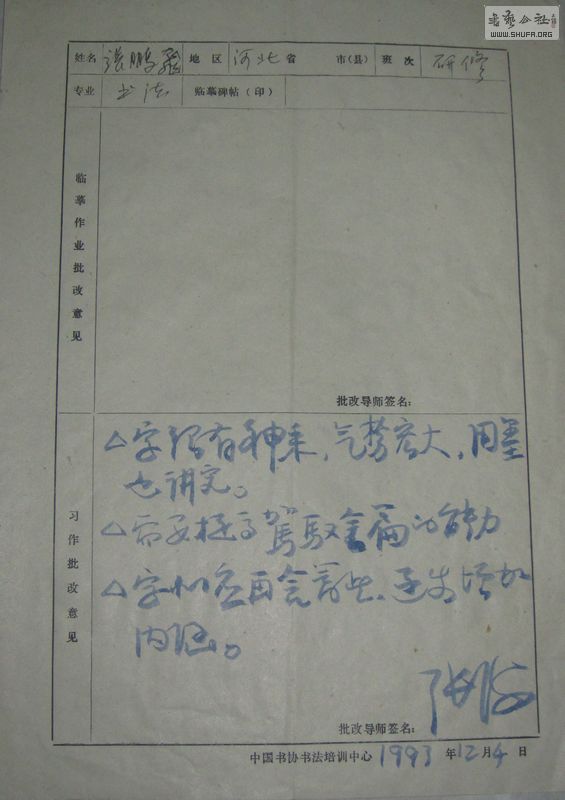 书艺公社
WWW.SHUFA.ORG
姓名 張鵬飛 地区 河北省 市(县) 班次 研修
专业 书法 临摹碑帖(印)
临摹作业批改意见
批改导师签名:
习作批改意见
△字很有神采,气势宏大,用墨
也讲究。
△需要提高驾驭全篇的能力
△字 应再含蓄些,
内涵。
批改导师签名: 张海
中国书协书法培训中心 1993年12月4日